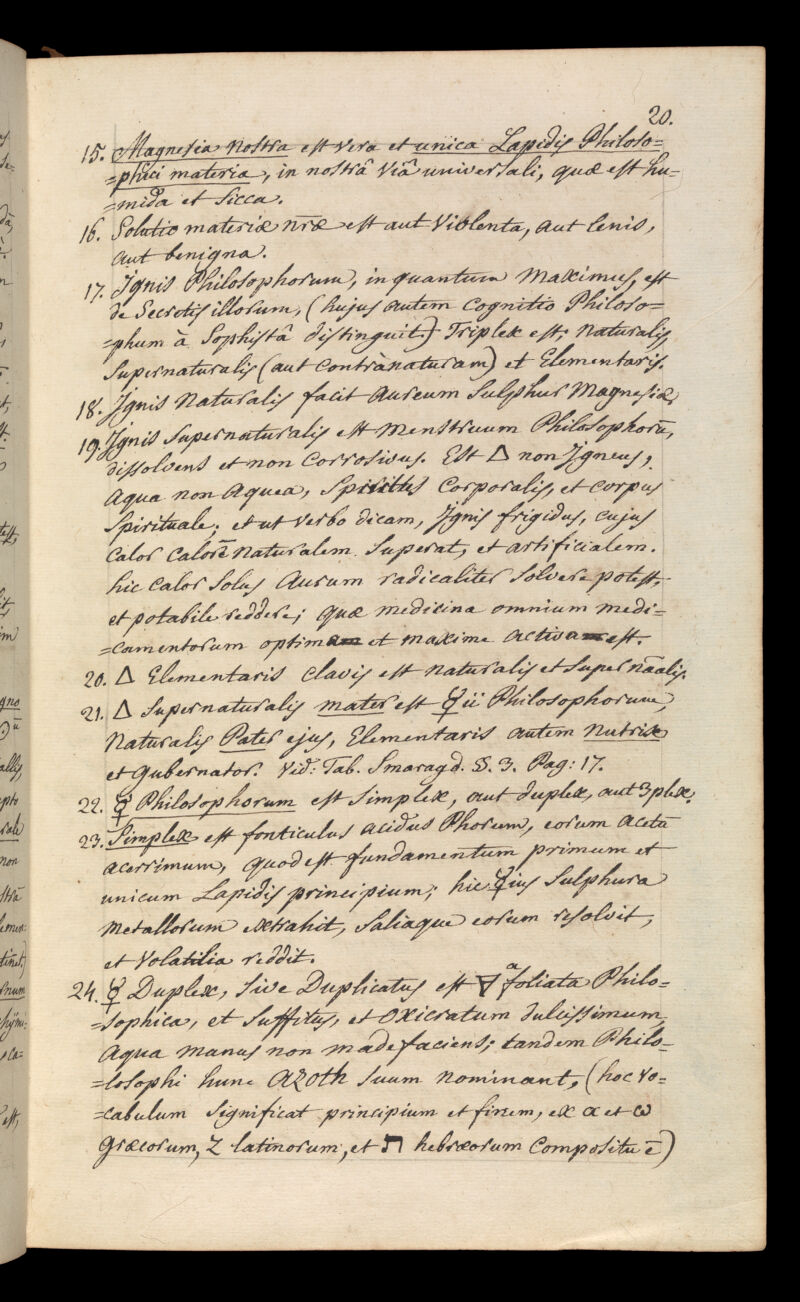 20.
15. Magnesia nostra est vera et unica Lapidis Philoso=
=phici materia, in nostrâ viâ universali, quæ est hu=
=mida et sicca.
16. Solutio materiæ nr̄æ est aut violenta, aut lenis,
aut benigna.
17. Ignis Philosophorum, in quantum maximus, est
de Secretis illorum, (hujus autem cognitio Philoso=
=phum à Sophistâ distinguit.) Triplex est; naturalis,
Supernaturalis (aut contrà naturam) et Elementaris.
18. Ignis Naturalis facit Aureum Sulphur Magnesiæ,
19. Ignis Supernaturalis est menstruum Philosophorū,
dissolvens et non corrosivus. Est 🜂 non Igneus,
aqua non aquea, Spiritus corporalis, et corpus
Spirituale; et ut verbo dicam, Ignis frigidus, cujus
calor calorē naturalem superat, et artificialem.
hic calor solus Aurum radicaliter solvere potest,
et potabile reddere; quæ medicina omnium medi=
=camentorum optima et maxime activa est.
20. 🜂 Elementaris clavis est naturalis et supernāalis.
21. 🜂 Supernaturalis mater est ☿ii Philosophorum,
Naturalis Pater ejus, Elementaris autem Nutrix
et gubernator. Vid: Tab. Smaragd. §. 3. Pag: 17.
22. ☿ Philosophorum est simplex, aut duplex, aut 3plex.
23. Simplex est fonticulus acidus Phorum, eorum acetū
acerrimum, quod est fundamentum primum et
unicum Lapidis principium; hic ☿ius Sulphura
metallorum extrahit, Saliaque eorum resolvit,
et volatilia reddit.
24. ☿ Duplex, sive Duplicatus est 🜃a foliata Philo=
=sophica, et Suffitus, et oxicratum dulcissimum
aqua manus non madefaciens; tandem Philo=
=losophi hunc Azoth suum nominant, (hoc vo=
=cabulum significat principium et finem, ex α et ω
græcorum, Z latinorum, et ת hebræorum compositu ē)